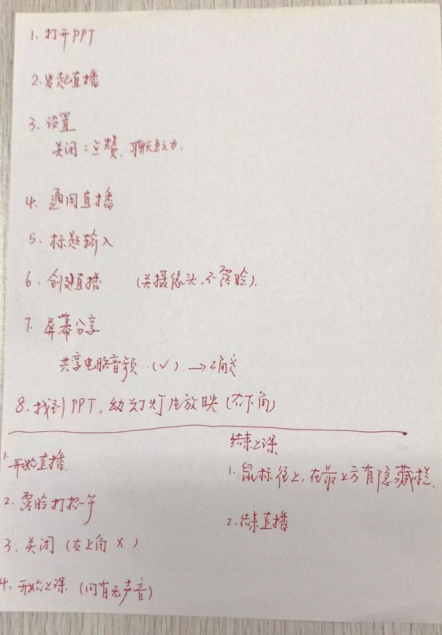 1. 打开PPT
2. 发起直播
3. 设置
关闭：点赞、聊天互动.
4. 通用直播
5. 标题输入
6. 创建直播 (关摄像头,不露脸).
7. 屏幕分享
共享电脑音频 (√) → 确定
8. 找到PPT, 幻灯片放映 (右下角)
1. 开始直播
2. 露脸打招呼
3. 关闭 (右上角 X)
4. 开始上课 (问有无声音)
结束上课
1. 鼠标往上, 在最上方有隐藏栏.
2. 结束直播